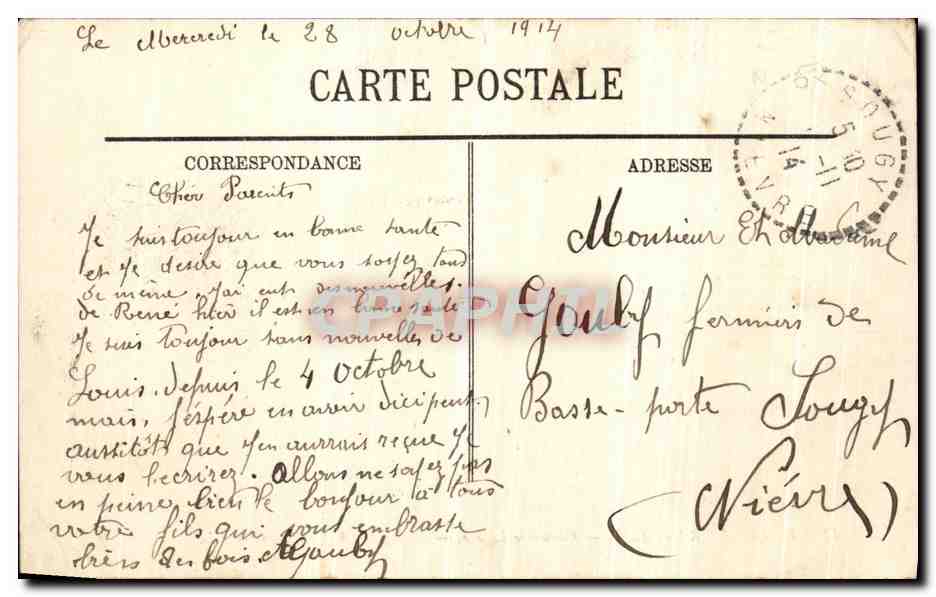 Le Mercredi le 28 octobre 1914
CARTE POSTALE
CORRESPONDANCE
Cher Parents
Je suis toujour en bonne santé
et Je désire que vous soyez tous
de même. J'ai eut des nouvelles
de René hier il est en bonne santé
Je suis toujour sans nouvelles de
Louis. depuis le 4 octobre
mais, j'éspéré en avoir dicipent
aussitôt que J'en aurrais reçue Je
vous l'ecrirez. allons ne soyez pas
en peine bien le bonjour à tous
votre fils qui vous embrasse
bièn des fois. Gouby
ADRESSE
Monsieur Et Madame
Gouby fermiers de
Basse-porte Sougy
(Nièvre)
SOUGY
NIEVRE
5-11
14
CPAPHIL